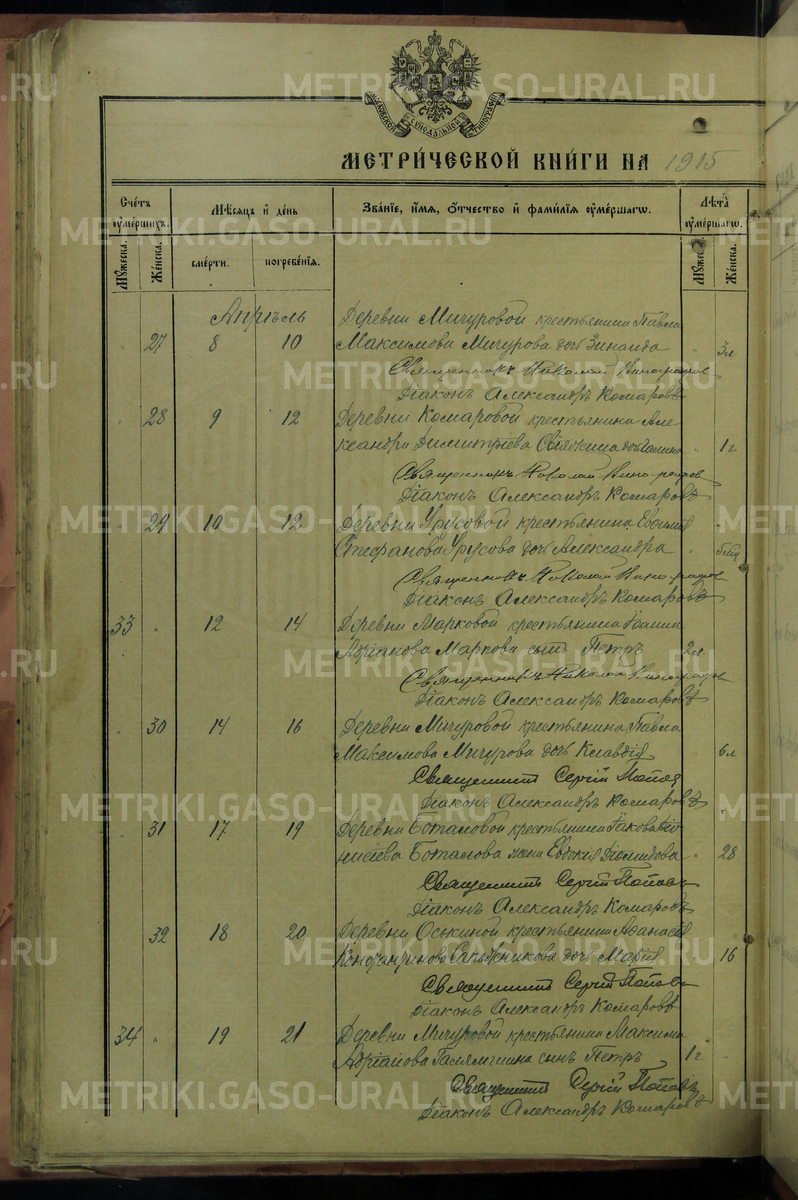 МЕТРИ́ЧЕСКОЙ КНИ́ГИ НА 1915
Сче́тъ оумершихъ.
Му́жеска.
Же́нска.
Мѣсяцъ и день
сме́рти.
погребе́нія.
Зва́ніе, и́мя, о́тчество и фами́лія оуме́ршагω.
Лѣта̀ оуме́ршагω.
Му́жес
Же́нска.
Апрѣль
Деревни Мичуровой крестьянина Павла
27 8 10 Максимова Мичурова дочь Зинаида 3л
Священникъ Николай Виноградов
Діаконъ Александръ Комаровъ
28 9 12 Деревни Комаровой крестьянина Але-
ксандра Димитріева дочь 1г
Священникъ Николай Виноградов
Діаконъ Александръ Комаровъ
29 10 12 Деревни Урусовой крестьянина Евдокима
Стефанова Урусова дочь Александра
Священникъ Николай Виноградов
Діаконъ Александръ Комаровъ
33 " 12 14 Деревни Марковой крестьянина Іоанна
Адріанова Маркова сынъ Петръ 2л
Священникъ Николай Виноградов
Діаконъ Александръ Комаровъ
30 14 16 Деревни Мичуровой крестьянина Павла
Максимова Мичурова дочь Клавдія 6л
Священникъ Сергій Попов
Діаконъ Александръ Комаровъ
31 17 19 Деревни Боталовой крестьянина Іакова Діо-
нисіева Боталова жена Евдокія Діомидова 28
Священникъ Сергій Попов
Діаконъ Александръ Комаровъ
32 18 20 Деревни Оськиной крестьянина Аѳанасія
Константинова Сапожникова дочь Марія 16
Священникъ Сергій Попов
Діаконъ Александръ Комаровъ
34 " 19 21 Деревни Мичуровой крестьянина Максима
Адріанова сынъ Петръ 1г.
Священникъ Сергій Поповъ
Діаконъ Александръ Комаровъ
METRIKI.GASO-URAL.RU